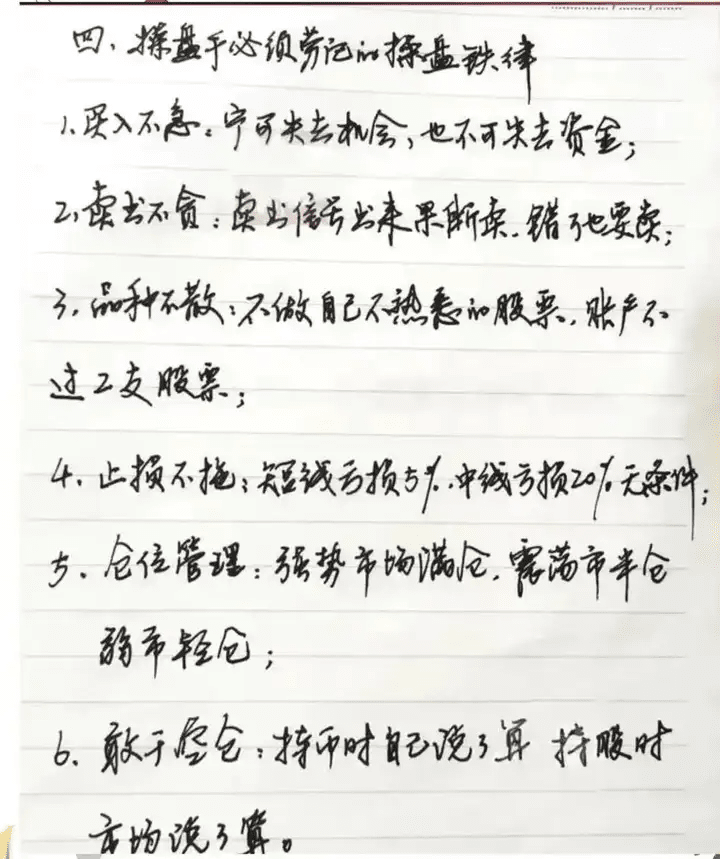 四、操盘手必须劳记的操盘铁律
1、买入不急：宁可失去机会，也不可失去资金；
2、卖出不贪：卖出信号出来果断卖，错了也要卖；
3、品种不散：不做自己不熟悉的股票，账户不
过2支股票；
4、止损不拖：短线亏损5%，中线亏损20%无条件；
5、仓位管理：强势市场满仓，震荡市半仓
弱市轻仓；
6、敢于空仓：持币时自己说了算 持股时
市场说了算。